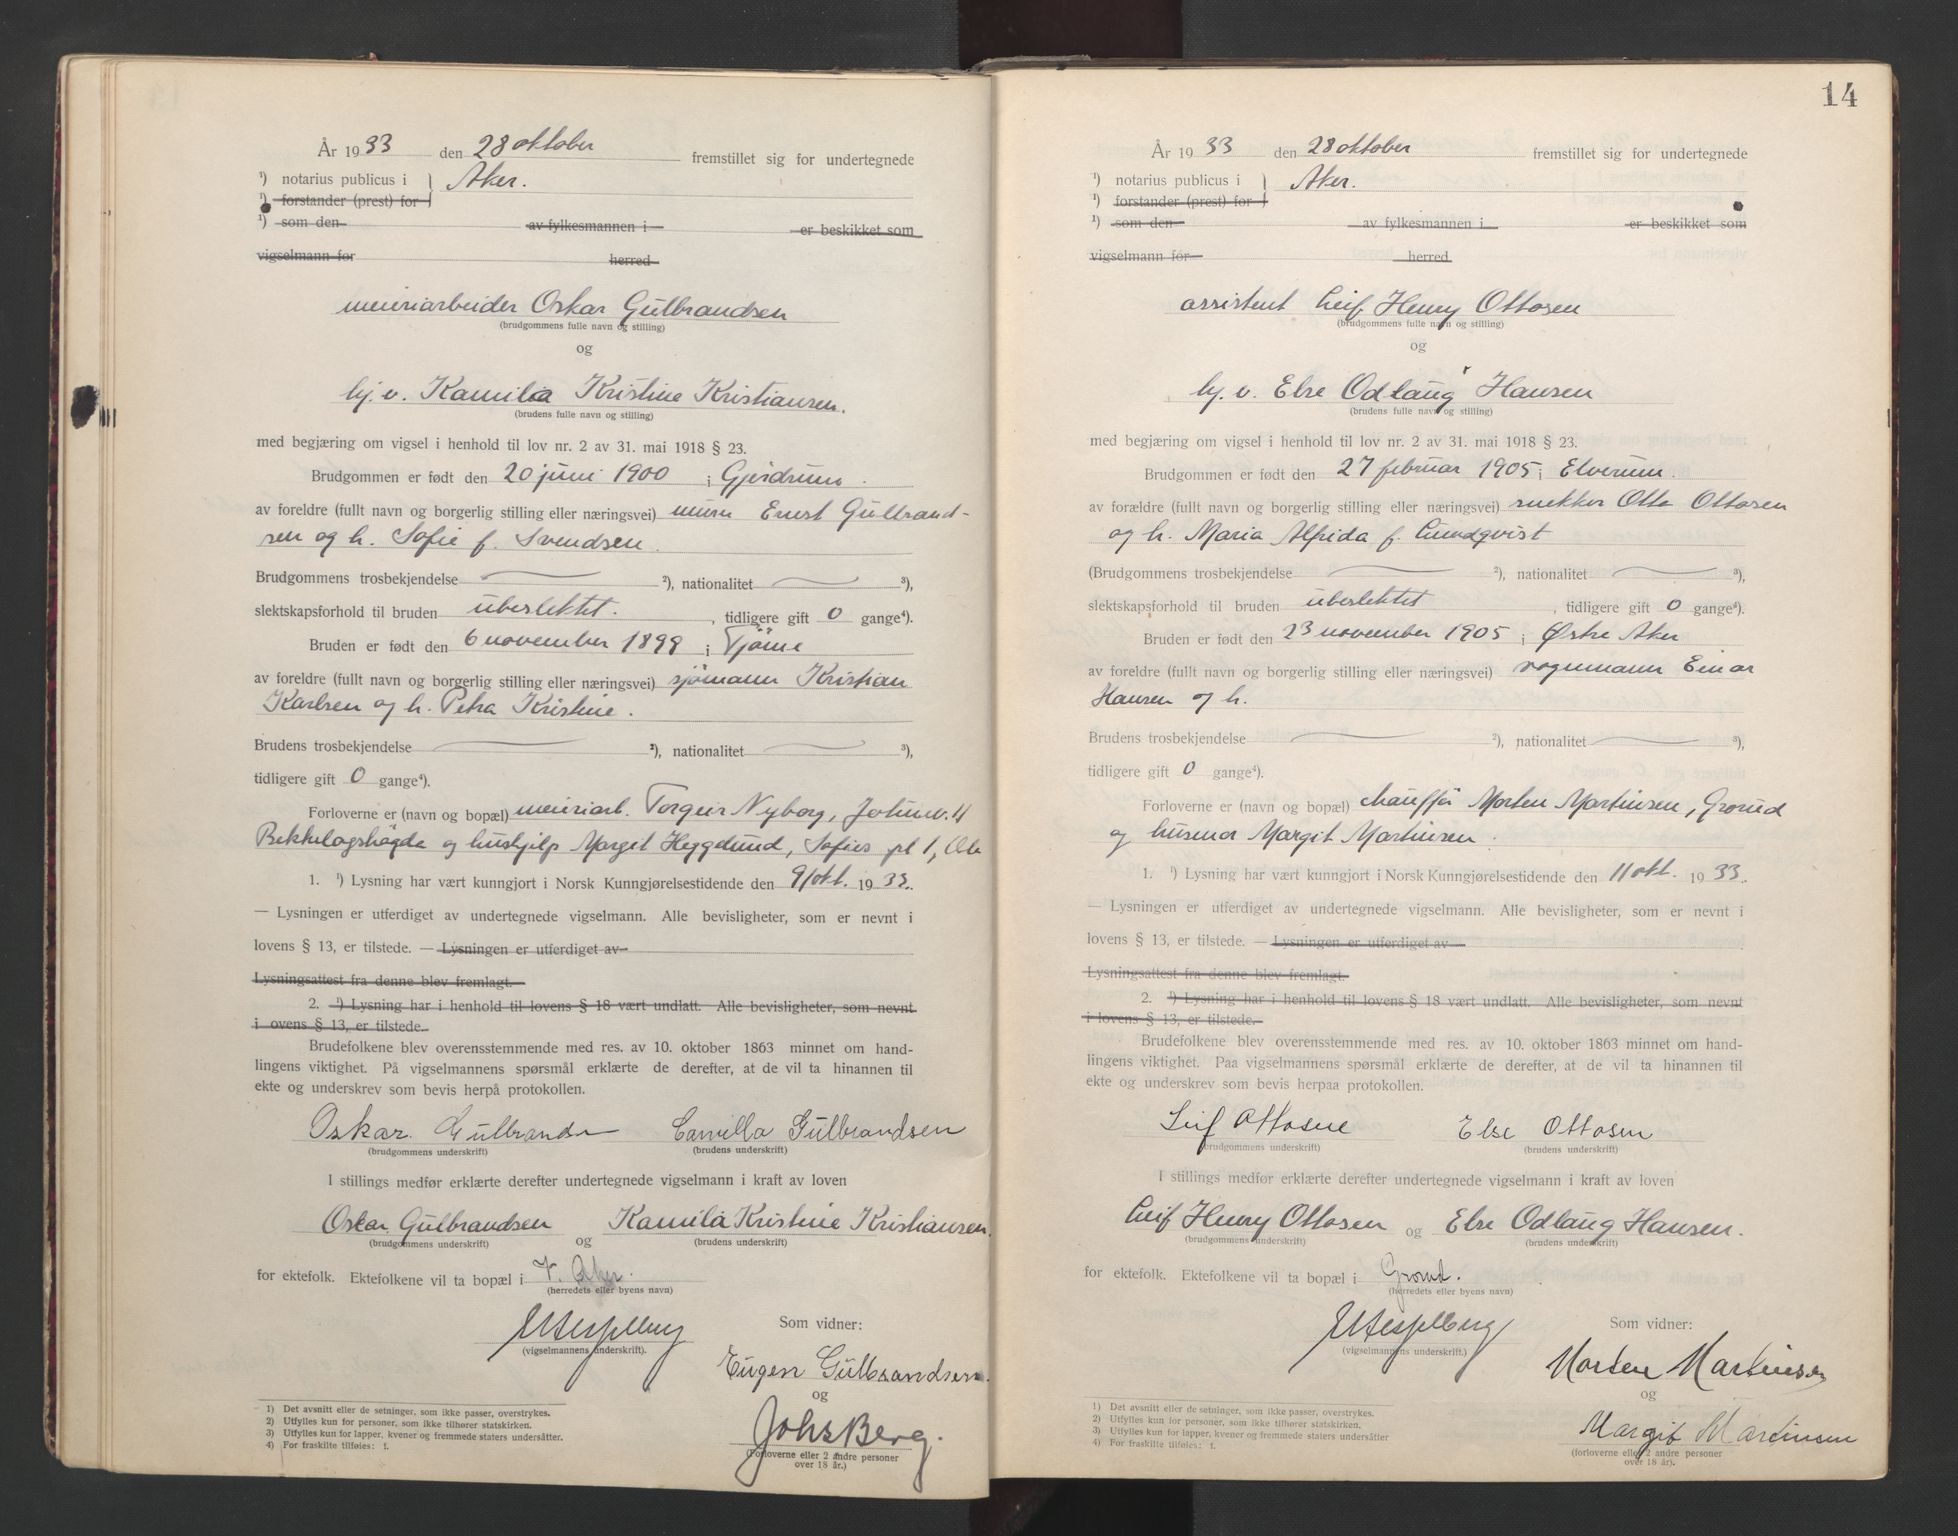 År 1933 den 28 oktober fremstillet sig for undertegnede
¹) notarius publicus i } Aker.
¹) forstander (prest) for
¹) som den av fylkesmannen i er beskikket som
vigselmann for herred
meieriarbeider Oskar Gulbrandsen
(brudgommens fulle navn og stilling)
og
hj.v. Kamilia Kristine Kristiansen.
(brudens fulle navn og stilling)
med begjæring om vigsel i henhold til lov nr. 2 av 31. mai 1918 § 23.
Brudgommen er født den 20 juni 1900 i Gjerdrum.
av foreldre (fullt navn og borgerlig stilling eller næringsvei) murer Ernst Gulbrand-
sen og h. Sofie f. Svendsen.
Brudgommens trosbekjendelse ²), nationalitet ³),
slektskapsforhold til bruden ubeslektet. , tidligere gift 0 gange⁴).
Bruden er født den 6 november 1899 i Tjöme
av foreldre (fullt navn og borgerlig stilling eller næringsvei) sjömann Kristian
Karlsen og h. Petra Kristine.
Brudens trosbekjendelse ²), nationalitet ³),
tidligere gift 0 gange⁴).
Forloverne er (navn og bopæl) meieriarb. Torgeir Nyborg,
Bekkelagshögda og hushjelp Margit Heggelund, Sofies pl 1,
1. ¹) Lysning har vært kunngjort i Norsk Kunngjørelsestidende den 9/okt. 1933.
— Lysningen er utferdiget av undertegnede vigselmann. Alle bevisligheter, som er nevnt i
lovens § 13, er tilstede. — Lysningen er utferdiget av
Lysningsattest fra denne blev fremlagt.
2. ¹) Lysning har i henhold til lovens § 18 vært undlatt. Alle bevisligheter, som nevnt
i ovens § 13, er tilstede.
Brudefolkene blev overensstemmende med res. av 10. oktober 1863 minnet om hand-
lingens viktighet. På vigselmannens spørsmål erklærte de derefter, at de vil ta hinannen til
ekte og underskrev som bevis herpå protokollen.
Oskar Gulbrandsen Camilla Gulbrandsen
(brudgommens underskrift) (brudens underskrift)
I stillings medfør erklærte derefter undertegnede vigselmann i kraft av loven
Oskar Gulbrandsen og Kamila Kristine Kristiansen.
(brudgommens underskrift) (brudens underskrift)
for ektefolk. Ektefolkene vil ta bopæl i V. Aker.
(herredets eller byens navn)
Som vidner:
(vigselmannens underskrift).
Eugen Gulbrandsen.
og
Johs Berg.
(Forloverne eller 2 andre personer
over 18 år.)
1) Det avsnitt eller de setninger, som ikke passer, overstrykes.
2) Utfylles kun for personer, som ikke tilhører statskirken.
3) Utfylles kun for lapper, kvener og fremmede staters undersåtter.
4) For fraskilte tilføies: f.
14
År 1933 den 28 oktober fremstillet sig for undertegnede
¹) notarius publicus i } Aker.
¹) forstander (prest) for
¹) som den av fylkesmannen i er beskikket som
vigselmann for herred
assistent Leif Henry Ottosen
(brudgommens fulle navn og stilling)
og
hj. v. Else Odlaug Hansen
(brudens fulle navn og stilling)
med begjæring om vigsel i henhold til lov nr. 2 av 31. mai 1918 § 23.
Brudgommen er født den 27 februar 1905 i Elverum.
av forældre (fullt navn og borgerlig stilling eller næringsvei) snekker Otto Ottosen
og h. Maria Alfrida f. Lundqvist
(Brudgommens trosbekjendelse ²), nationalitet ³),
slektskapsforhold til bruden ubeslektet , tidligere gift 0 gange⁴).
Bruden er født den 23 november 1905 i Østre Aker
av foreldre (fullt navn og borgerlig stilling eller næringsvei) vognmann Einar
Hansen og h.
Brudens trosbekjendelse ²), nationalitet ³),
tidligere gift 0 gange⁴).
Forloverne er (navn og bopæl) chaufför Morten Martinsen, Grorud
og husmor Margit Martinsen.
1. ¹) Lysning har vært kunngjort i Norsk Kunngjørelsestidende den 11 okt. 1933.
— Lysningen er utferdiget av undertegnede vigselmann. Alle bevisligheter, som er nevnt i
lovens § 13, er tilstede. — Lysningen er utferdiget av
Lysningsattest fra denne blev fremlagt.
2. ¹) Lysning har i henhold til lovens § 18 vært undlatt. Alle bevisligheter, som nevnt
i lovens § 13, er tilstede.
Brudefolkene blev overensstemmende med res. av 10. oktober 1863 minnet om hand-
lingens viktighet. Paa vigselmannens spørsmål erklærte de derefter, at de vil ta hinannen til
ekte og underskrev som bevis herpaa protokollen.
Leif Ottosen Else Ottosen
(brudgommens underskrift) (brudens underskrift)
I stillings medfør erklærte derefter undertegnede vigselmann i kraft av loven
Leif Henry Ottosen og Else Odlaug Hansen.
(brudgommens underskrift) (brudens underskrift)
for ektefolk. Ektefolkene vil ta bopæl i Grorud.
(herredets eller byens navn)
Som vidner:
(vigselmannens underskrift.)
Morten Martinsen
og
Margit Martinsen
(forloverne eller 2 andre personer
over 18 år).
1) Det avsnitt eller de setninger, som ikke passer, overstrykes.
2) Utfylles kun for personer, som ikke tilhører statskirken.
3) Utfylles kun for lapper, kvener og fremmede staters undersåtter
4) For fraskilte tilføies: f.